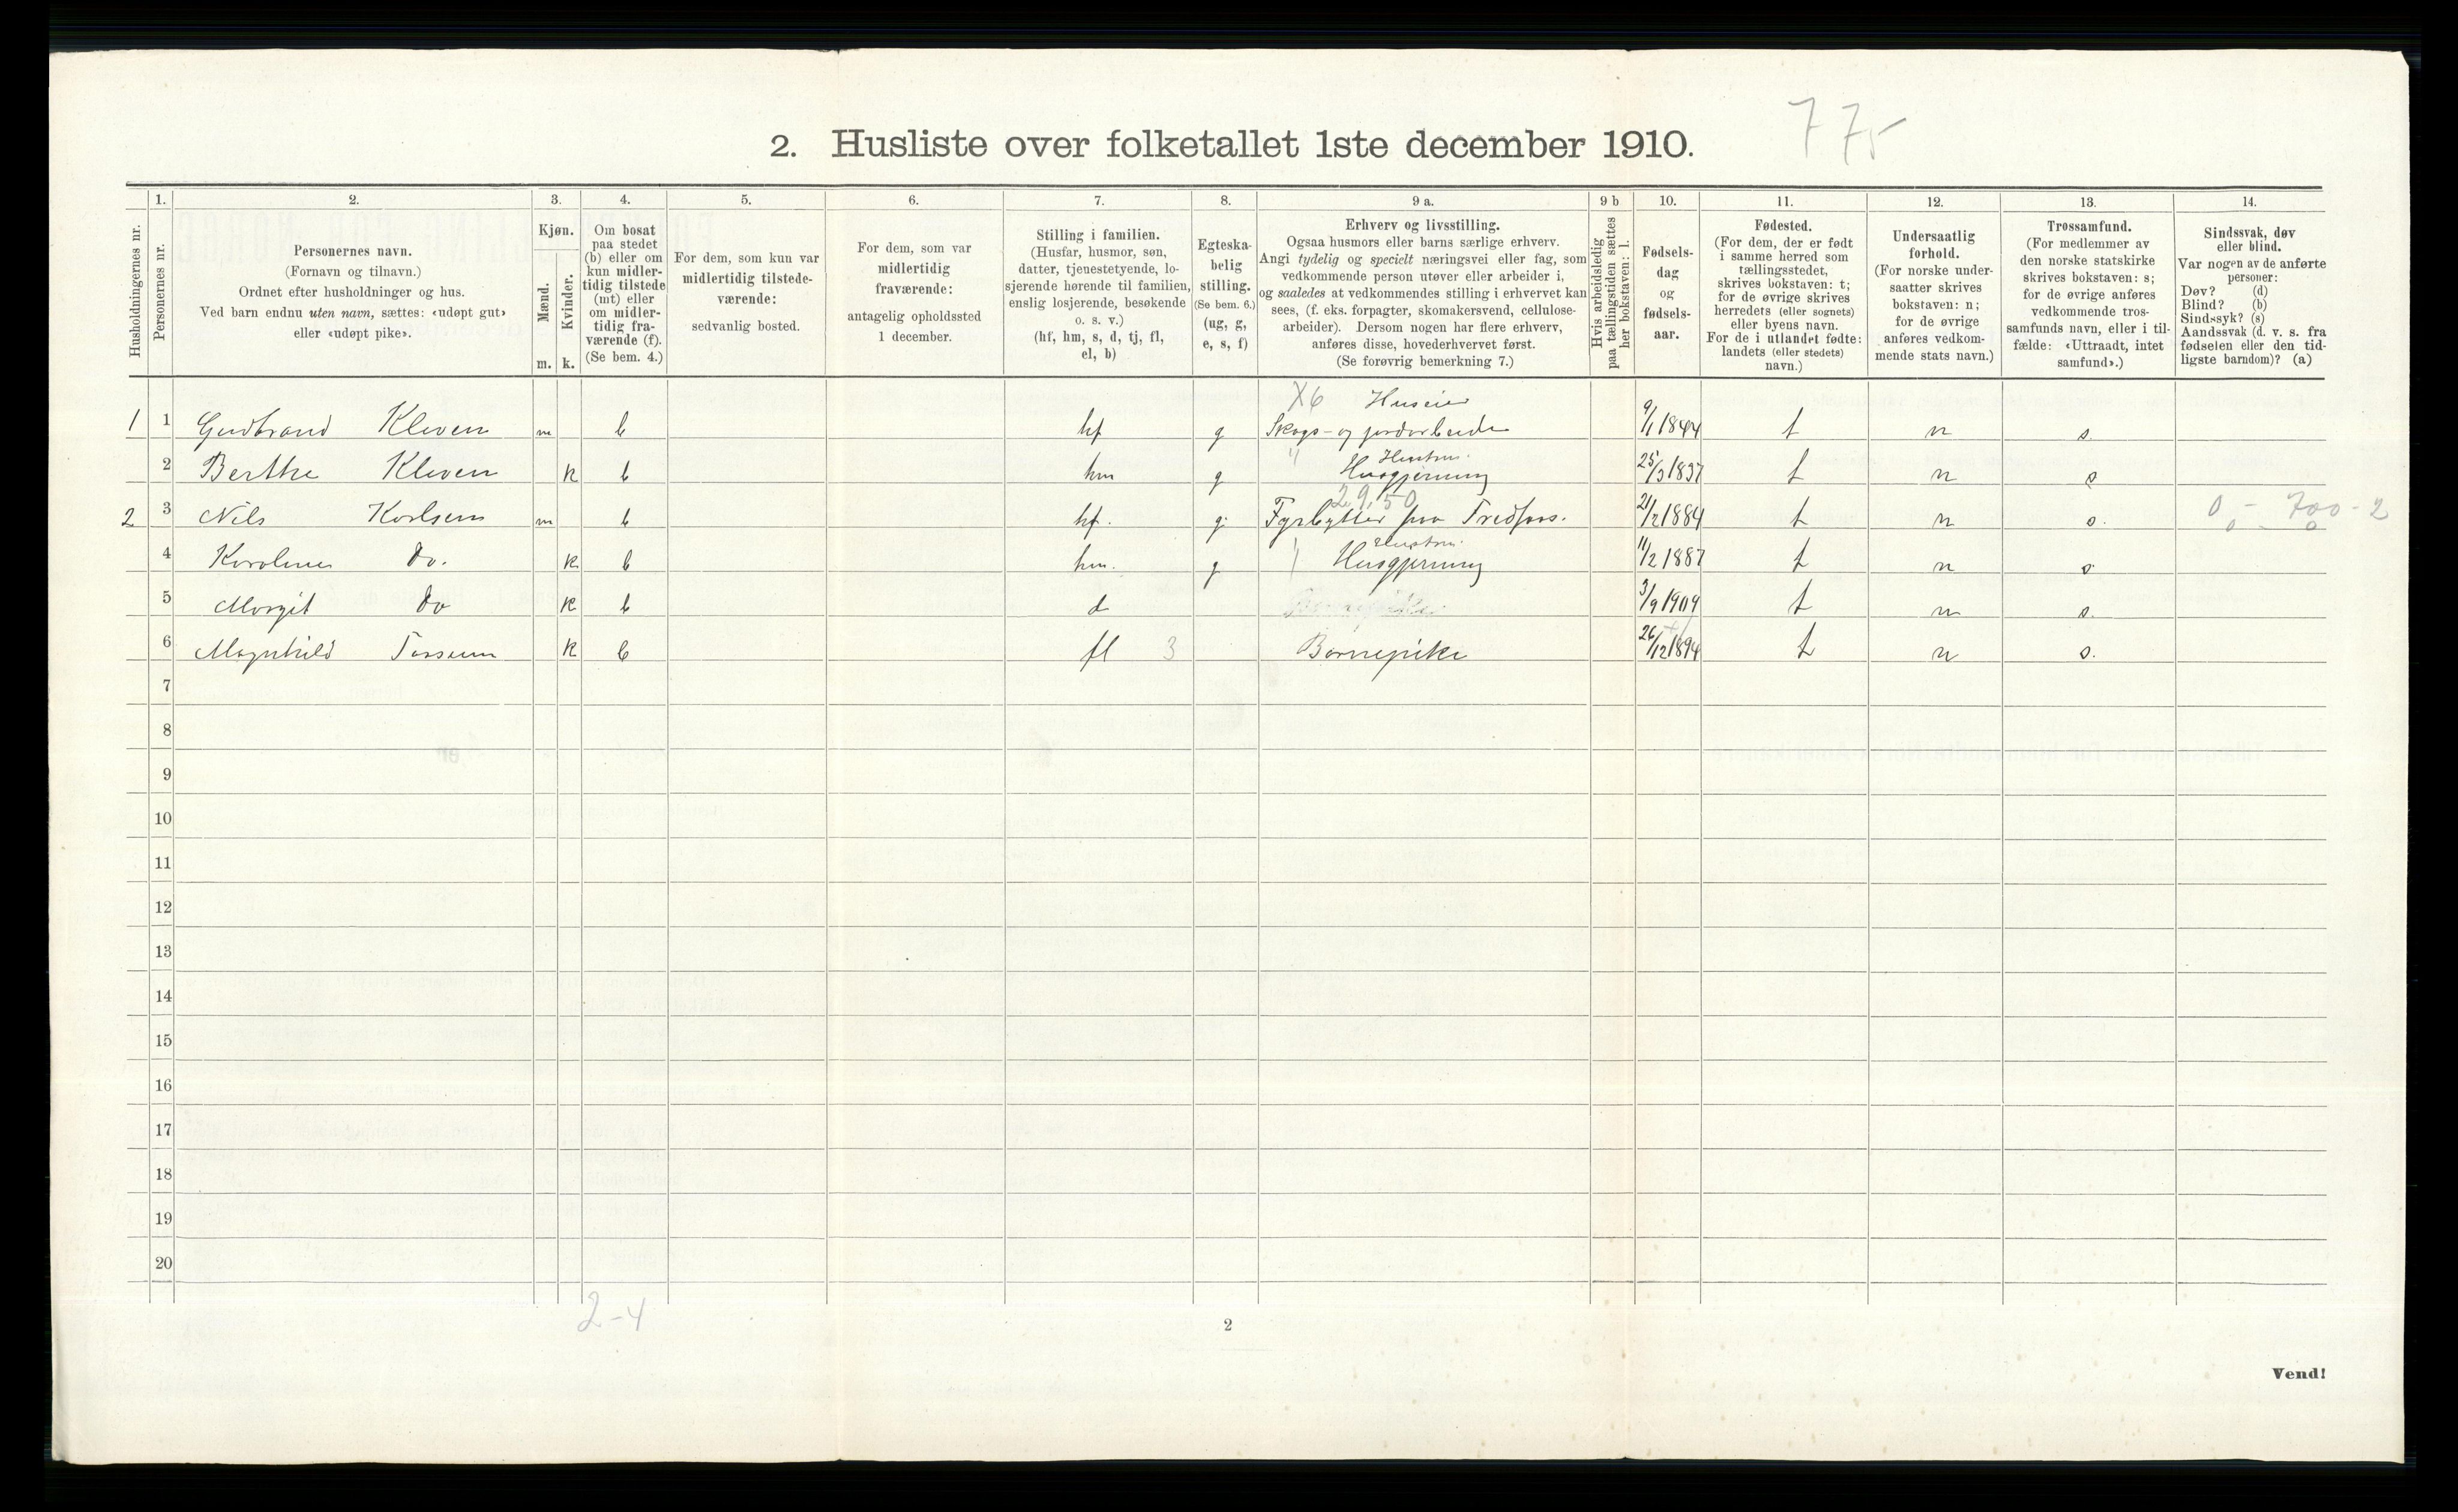 775
2. Husliste over folketallet 1ste december 1910.
Husholdningernes nr.
1.
Personernes nr.
2.
Personernes navn.
(Fornavn og tilnavn.)
Ordnet efter husholdninger og hus.
Ved barn endnu uten navn, sættes: «udøpt gut»
eller «udøpt pike».
3.
Kjøn.
Mænd.
m.
Kvinder.
k.
4.
Om bosat
paa stedet
(b) eller om
kun midler-
tidig tilstede
(mt) eller
om midler-
tidig fra-
værende (f).
(Se bem. 4.)
5.
For dem, som kun var
midlertidig tilstede-
værende:
sedvanlig bosted.
6.
For dem, som var
midlertidig
fraværende:
antagelig opholdssted
1 december.
7.
Stilling i familien.
(Husfar, husmor, søn,
datter, tjenestetyende, lo-
sjerende hørende til familien,
enslig losjerende, besøkende
o. s. v.)
(hf, hm, s, d, tj, fl,
el, b)
8.
Egteska-
belig
stilling.
(Se bem. 6.)
(ug, g,
e, s, f)
9 a.
Erhverv og livsstilling.
Ogsaa husmors eller barns særlige erhverv.
Angi tydelig og specielt næringsvei eller fag, som
vedkommende person utøver eller arbeider i,
og saaledes at vedkommendes stilling i erhvervet kan
sees, (f. eks. forpagter, skomakersvend, cellulose-
arbeider). Dersom nogen har flere erhverv,
anføres disse, hovederhvervet først.
(Se forøvrig bemerkning 7.)
9 b
Hvis arbeidsledig
paa tællingstiden sættes
her bokstaven: l.
10.
Fødsels-
dag
og
fødsels-
aar.
11.
Fødested.
(For dem, der er født
i samme herred som
tællingsstedet,
skrives bokstaven: t;
for de øvrige skrives
herredets (eller sognets)
eller byens navn.
For de i utlandet fødte:
landets (eller stedets)
navn.)
12.
Undersaatlig
forhold.
(For norske under-
saatter skrives
bokstaven: n;
for de øvrige
anføres vedkom-
mende stats navn.)
13.
Trossamfund.
(For medlemmer av
den norske statskirke
skrives bokstaven: s;
for de øvrige anføres
vedkommende tros-
samfunds navn, eller i til-
fælde: «Uttraadt, intet
samfund».)
14.
Sindssvak, døv
eller blind.
Var nogen av de anførte
personer:
Døv? (d)
Blind? (b)
Sindssyk? (s)
Aandssvak (d. v. s. fra
fødselen eller den tid-
ligste barndom)? (a)
X6 Huseier
1 1 Gudbrand Kleven m b hf g Skogs- og jordarbeider 9/1 1844 t n s.
Hustru.
2 Berthe Kleven k b hm g Husgjerning 25/3 1837 t n s
29,50
2 3 Nils Karlsen m b hf. g. Fyrbytter paa Tredfos. 21/2 1884 t n s. 0 - 700 - 2
Hustru.
4 Karoline do. k b hm. g Husgjerning 11/2 1887 t n s
5 Margit do k b d 3/9 1909 t n s.
6 Magnhild k b fl 3 Barnepike 26/12 1894 t n s.
7
8
9
10
11
12
13
14
15
16
17
18
19
20
2-4
2
Vend!